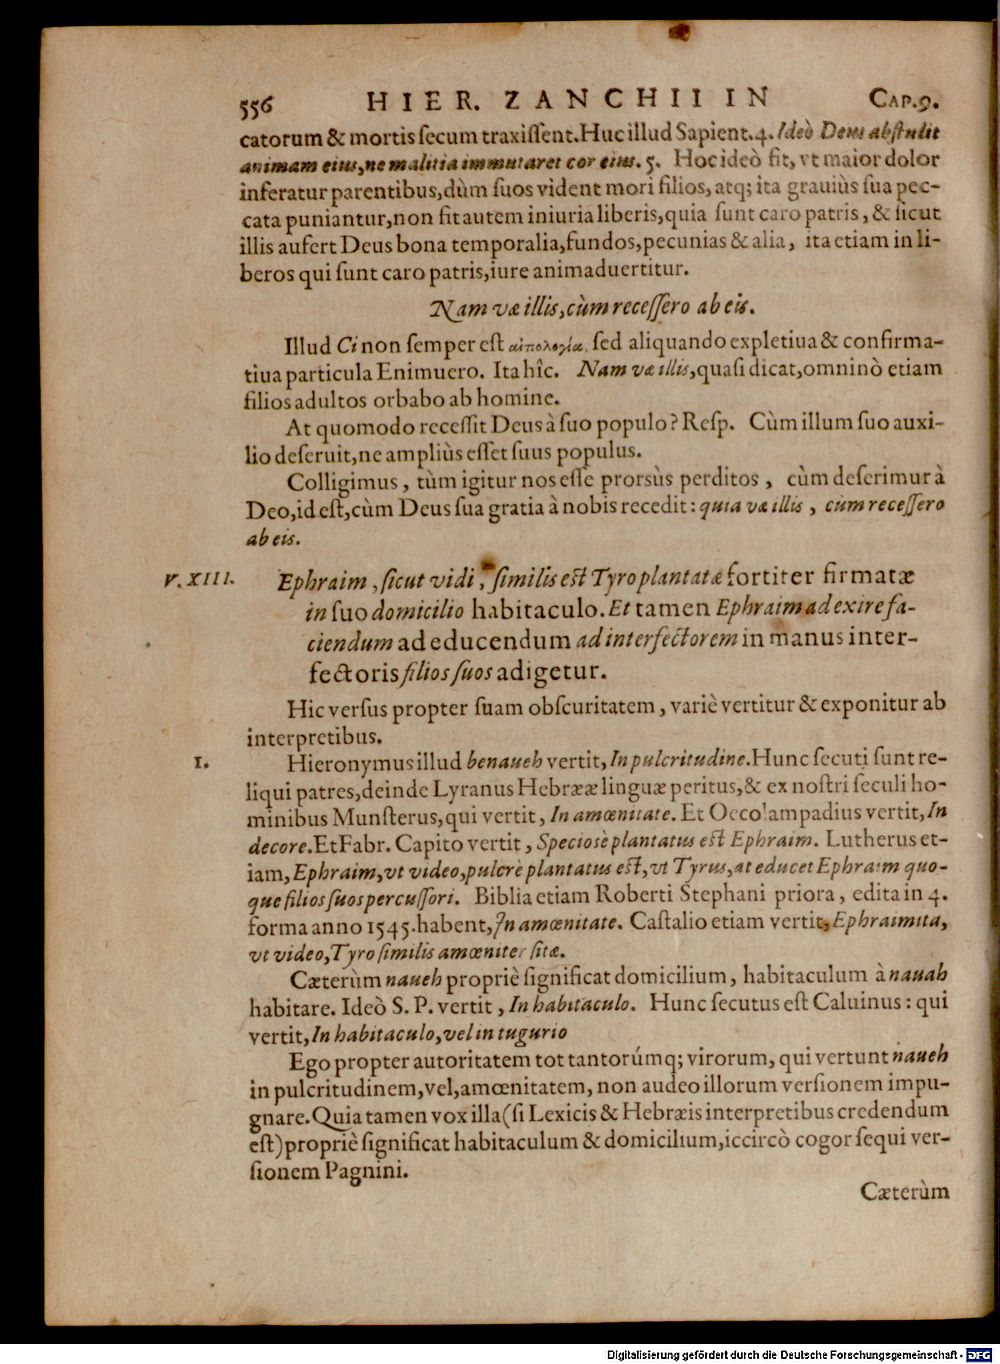 556 HIER. ZANCHII IN CAP.9.
catorum & mortis secum traxissent. Huc illud Sapient. 4. Ideò Deus abstulit
animam eius, ne malitia immutaret cor eius. 5. Hoc ideò fit, vt maior dolor
inferatur parentibus, dùm suos vident mori filios, atq; ita grauiùs sua pec-
cata puniantur, non fit autem iniuria liberis, quia sunt caro patris, & sicut
illis aufert Deus bona temporalia, fundos, pecunias & alia, ita etiam in li-
beros qui sunt caro patris, iure animaduertitur.
Nam væ illis, cùm recessero ab eis.
Illud Ci non semper est αἰτιολογία, sed aliquando expletiua & confirma-
tiua particula Enimuero. Ita hîc. Nam væ illis, quasi dicat, omninò etiam
filios adultos orbabo ab homine.
At quomodo recessit Deus à suo populo? Resp. Cùm illum suo auxi-
lio deseruit, ne ampliùs esset suus populus.
Colligimus, tùm igitur nos esse prorsùs perditos, cùm deserimur à
Deo, id est, cùm Deus sua gratia à nobis recedit: quia væ illis, cùm recessero
ab eis.
V. XIII. Ephraim, sicut vidi, similis est Tyro plantatæ fortiter firmatæ
in suo domicilio habitaculo. Et tamen Ephraim ad exire fa-
ciendum ad educendum ad interfectorem in manus inter-
fectoris filios suos adigetur.
Hic versus propter suam obscuritatem, variè vertitur & exponitur ab
interpretibus.
1. Hieronymus illud benaueh vertit, In pulcritudine. Hunc secuti sunt re-
liqui patres, deinde Lyranus Hebrææ linguæ peritus, & ex nostri seculi ho-
minibus Munsterus, qui vertit, In amœnitate. Et Oecolampadius vertit, In
decore. Et Fabr. Capito vertit, Speciosè plantatus est Ephraim. Lutherus et-
iam, Ephraim, vt video, pulcrè plantatus est, vt Tyrus, at educet Ephraim quo-
que filios suos percussori. Biblia etiam Roberti Stephani priora, edita in 4.
forma anno 1545. habent, In amœnitate. Castalio etiam vertit, Ephraimita,
vt video, Tyro similis amœniter sitæ.
Cæterùm naueh propriè significat domicilium, habitaculum à nauah
habitare. Ideò S. P. vertit, In habitaculo. Hunc secutus est Caluinus: qui
vertit, In habitaculo, vel in tugurio
Ego propter autoritatem tot tantorúmq; virorum, qui vertunt naueh
in pulcritudinem, vel, amœnitatem, non audeo illorum versionem impu-
gnare. Quia tamen vox illa (si Lexicis & Hebræis interpretibus credendum
est) propriè significat habitaculum & domicilium, iccircò cogor sequi ver-
sionem Pagnini.
Cæterùm
Digitalisierung gefördert durch die Deutsche Forschungsgemeinschaft - DFG